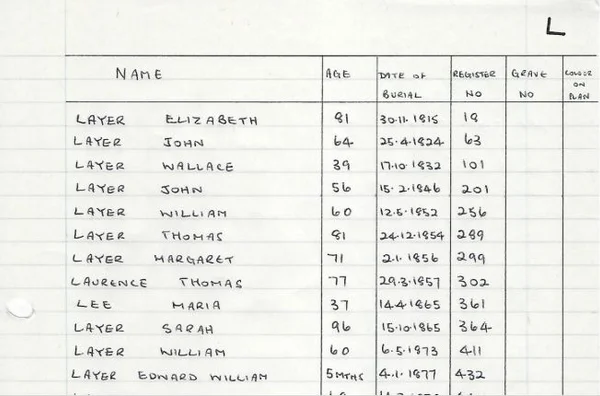 L
NAME AGE DATE OF BURIAL REGISTER NO GRAVE NO COLOUR ON PLAN
LAYER ELIZABETH 81 30.11.1815 19
LAYER JOHN 64 25.4.1824 63
LAYER WALLACE 39 17.10.1832 101
LAYER JOHN 56 15.2.1846 201
LAYER WILLIAM 60 12.5.1852 256
LAYER THOMAS 81 24.12.1854 289
LAYER MARGARET 71 2.1.1856 299
LAURENCE THOMAS 77 29.3.1857 302
LEE MARIA 37 14.4.1865 361
LAYER SARAH 96 15.10.1865 364
LAYER WILLIAM 60 6.5.1873 411
LAYER EDWARD WILLIAM 5 MTHS 4.1.1877 432